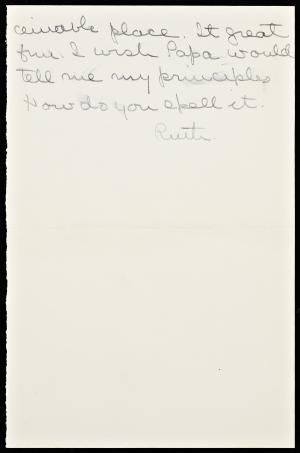 ceivable place. It great
fun. I wish Papa would
tell me my principles
How do you spell it.
Ruth